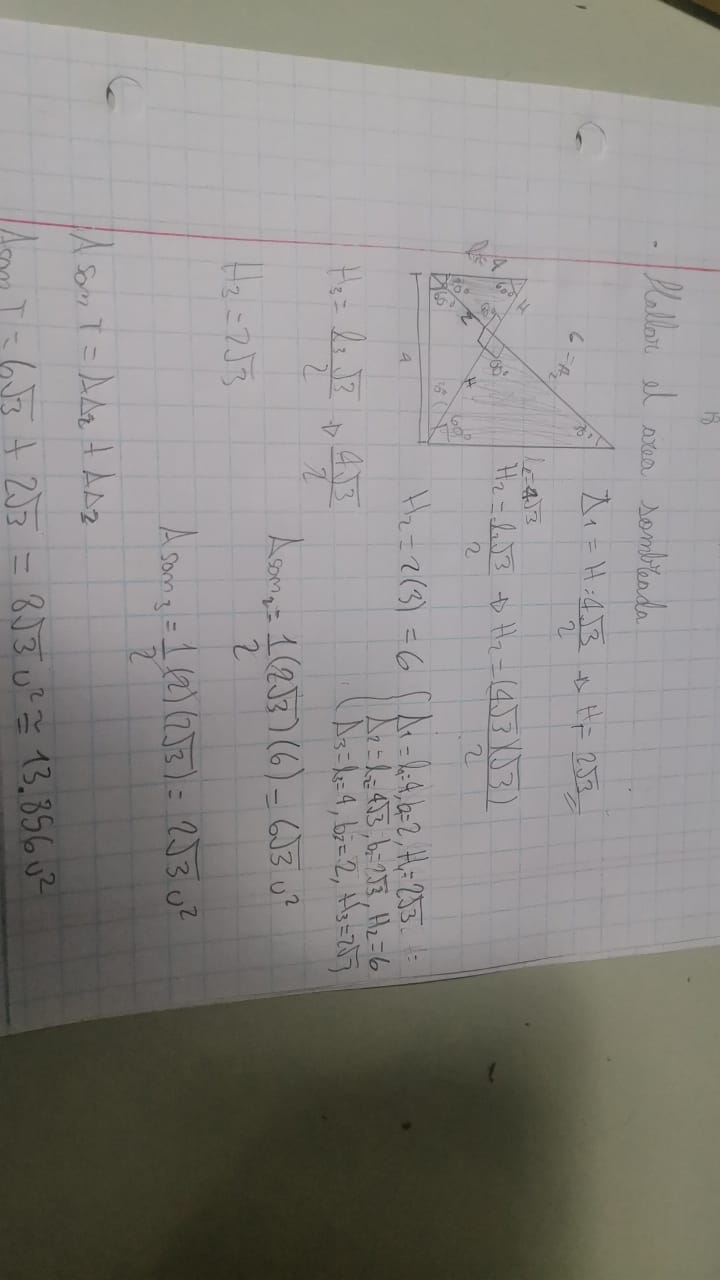 · Hallar el area sombreada
Δ1 = H: 4√3/2 → H1 = 2√3
l2=4√3
H2 = l2√3/2 → H2 = (4√3)(√3)/2
H2 = 2(3) = 6
Δ1 = l1=4, b=2, H1=2√3
Δ2 = l2=4√3, b2=2√3, H2=6
Δ3 = l3=4, b2=2, H3=2√3
H3 = l3√3/2 → 4√3/2
H3 = 2√3
Asom2 = 1/2 (2√3)(6) = 6√3 u²
Asom3 = 1/2 (2)(2√3) = 2√3 u²
A som T = AΔ2 + AΔ3
Asom T = 6√3 + 2√3 = 8√3 u² ≃ 13.856 u²